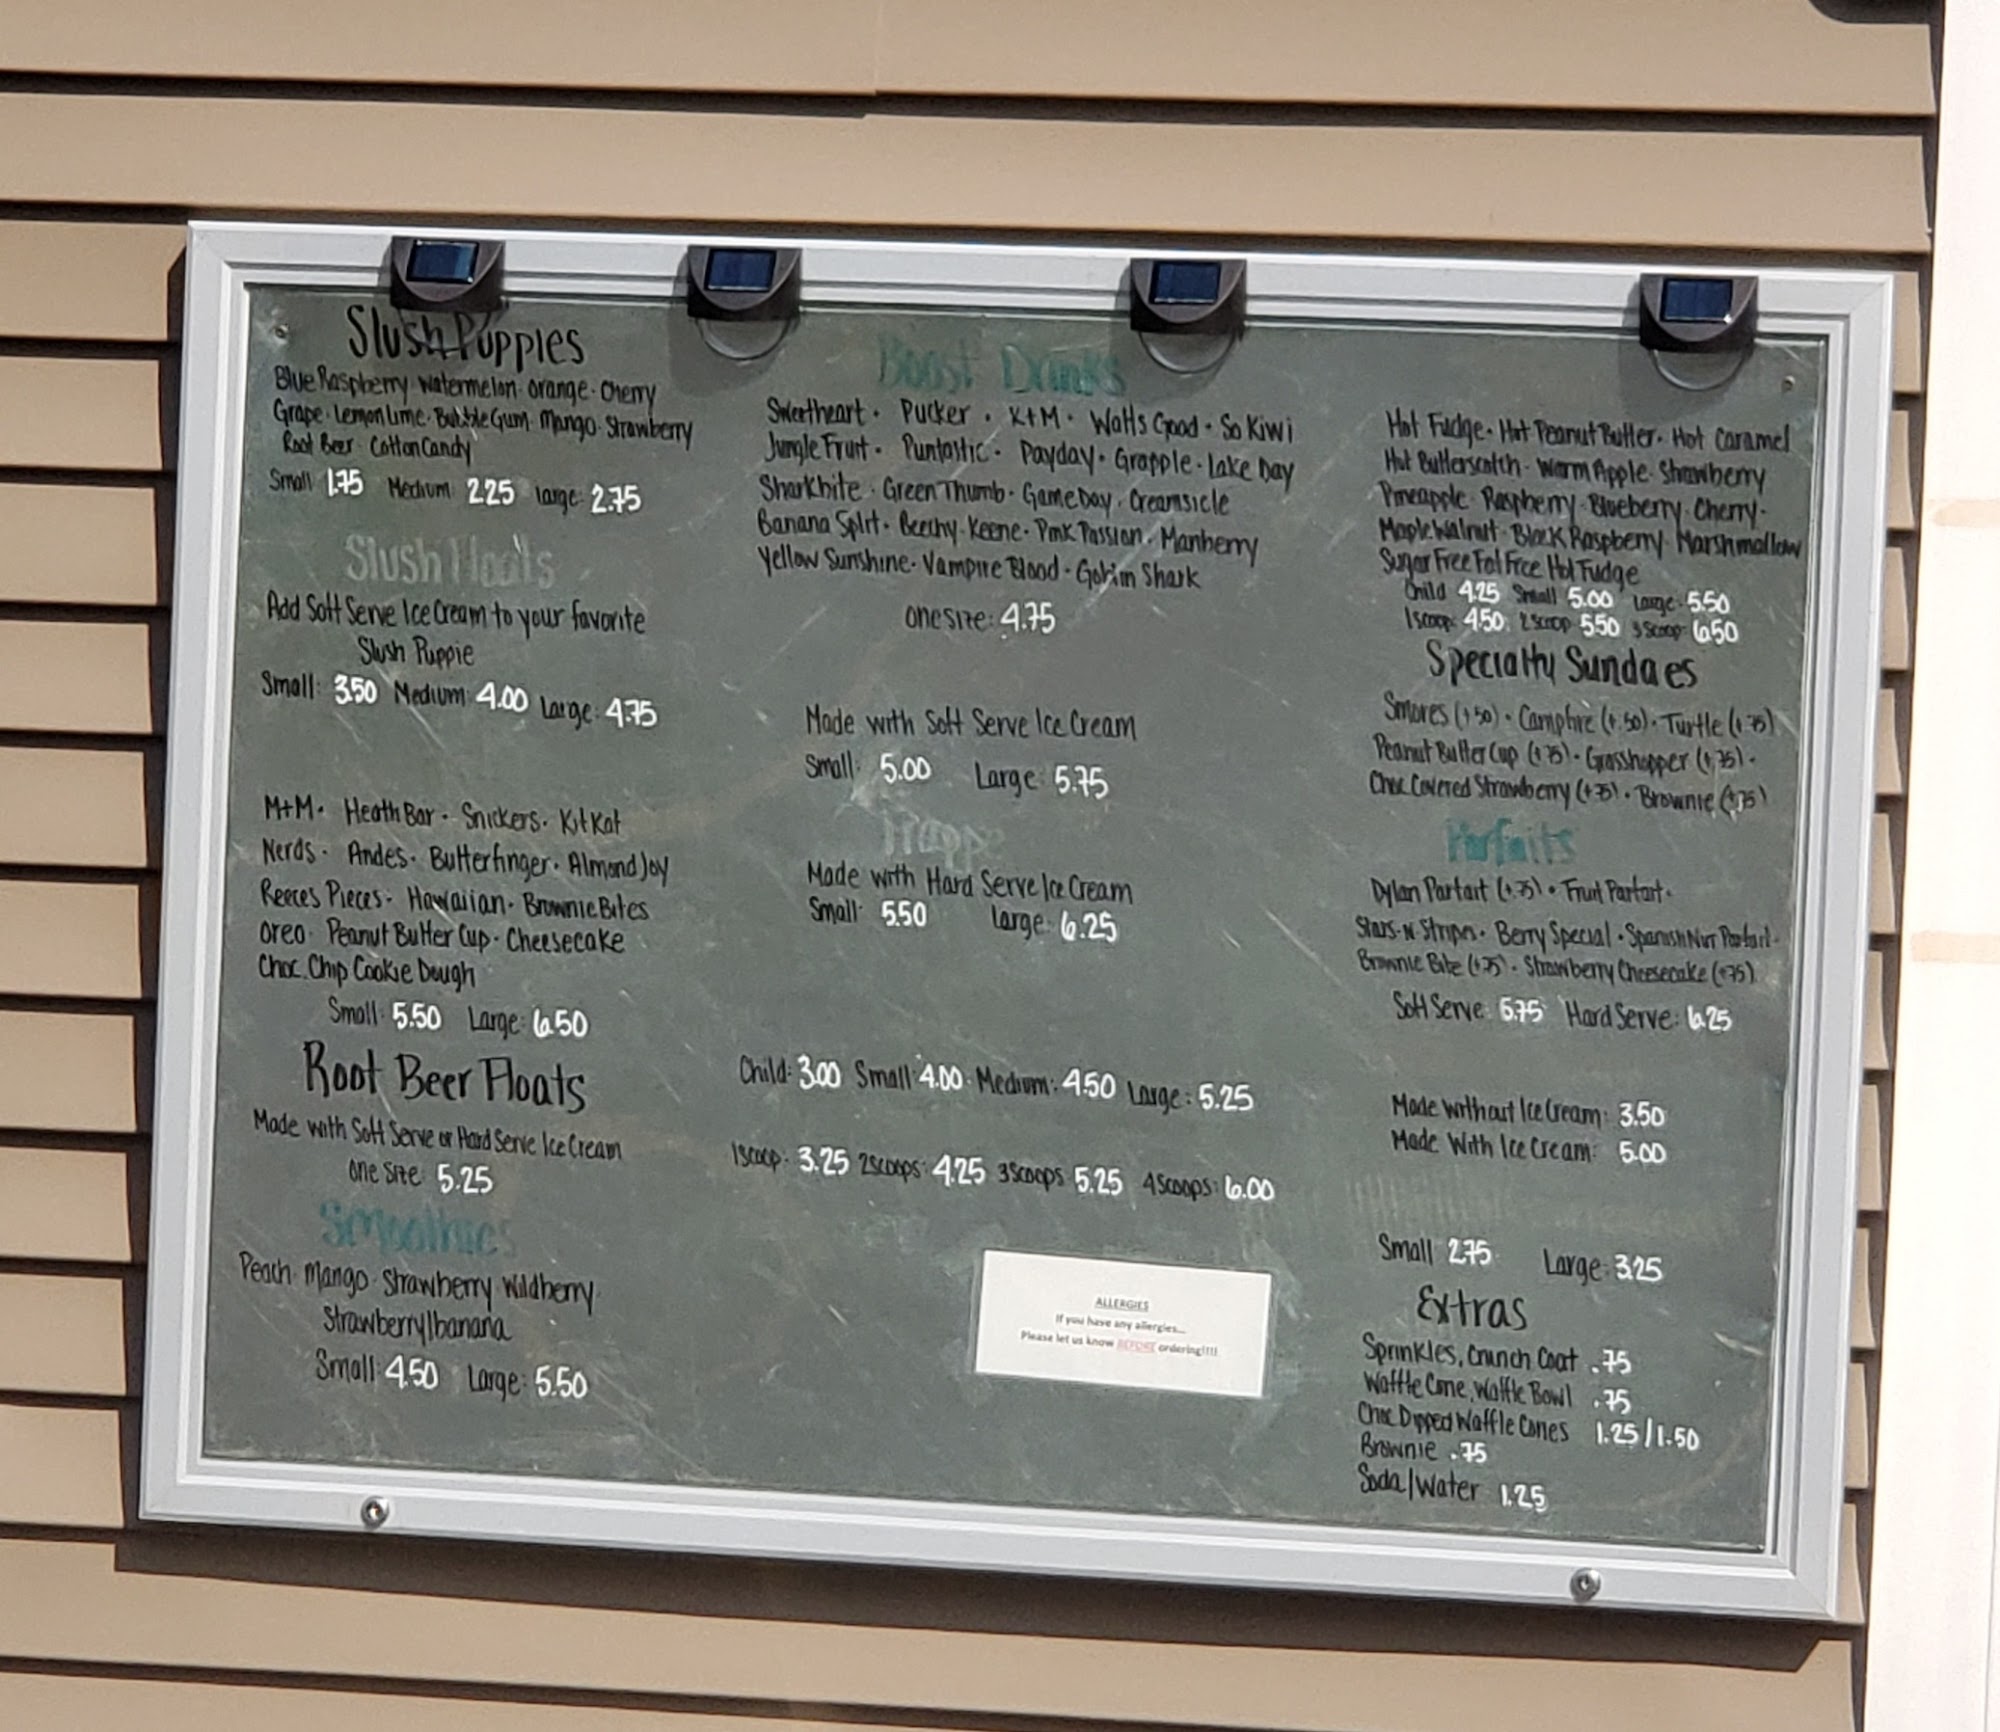 Slush Puppies
Blue Raspberry · Watermelon · Orange · Cherry
Grape · Lemon Lime · Bubble Gum · Mango · Strawberry
Root Beer · Cotton Candy
Small 1.75 Medium: 2.25 Large: 2.75
Slush Floats
Add Soft Serve Ice Cream to your favorite
Slush Puppie
Small: 3.50 Medium: 4.00 Large: 4.75
M+M · Heath Bar · Snickers · Kit Kat
Nerds · Andes · Butterfinger · Almond Joy
Reeces Pieces · Hawaiian · Brownie Bites
Oreo · Peanut Butter Cup · Cheesecake
Choc. Chip Cookie Dough
Small: 5.50 Large: 6.50
Root Beer Floats
Made with Soft Serve or Hard Serve Ice Cream
One Size: 5.25
Smoothies
Peach · Mango · Strawberry · Wildberry
Strawberry/banana
Small: 4.50 Large: 5.50
Boost Drinks
Sweetheart · Pucker · K+M · Watts Good · So Kiwi
Jungle Fruit · Puntastic · Payday · Grapple · Lake Day
Sharkbite · Green Thumb · Game Day · Creamsicle
Banana Split · Beechy · Keene · Pink Passion · Manberry
Yellow Sunshine · Vampire Blood · Goblin Shark
one size: 4.75
Made with Soft Serve Ice Cream
Small: 5.00 Large: 5.75
Frappe
Made with Hard Serve Ice Cream
Small: 5.50 Large: 6.25
Child: 3.00 Small: 4.00 Medium: 4.50 Large: 5.25
1 Scoop: 3.25 2 Scoops: 4.25 3 Scoops 5.25 4 Scoops: 6.00
ALLERGIES
If you have any allergies...
Please let us know BEFORE ordering!!!!
Hot Fudge · Hot Peanut Butter · Hot Caramel
Hot Butterscotch · Warm Apple · Strawberry
Pineapple · Raspberry · Blueberry · Cherry ·
Maple Walnut · Black Raspberry · Marshmallow
Sugar Free Fat Free Hot Fudge
Child 4.25 Small 5.00 Large: 5.50
1 Scoop: 4.50 2 Scoop 5.50 3 Scoop: 6.50
Specialty Sundaes
Smores (+.50) · Campfire (+.50) · Turtle (+.75)
Peanut Butter Cup (+.75) · Grasshopper (+.75) ·
Choc Covered Strawberry (+.75) · Brownie (+.75)
Parfaits
Dylan Parfait (+.75) · Fruit Parfait ·
Stars-N-Stripes · Berry Special · Spanish Nut Parfait ·
Brownie Bite (+.75) · Strawberry Cheesecake (+.75)
Soft Serve: 5.75 Hard Serve: 6.25
Made without Ice Cream: 3.50
Made With Ice Cream: 5.00
Small 2.75 Large: 3.25
Extras
Sprinkles, Crunch Coat .75
Waffle Cone, Waffle Bowl .75
Choc Dipped Waffle Cones 1.25/1.50
Brownie .75
Soda/Water 1.25